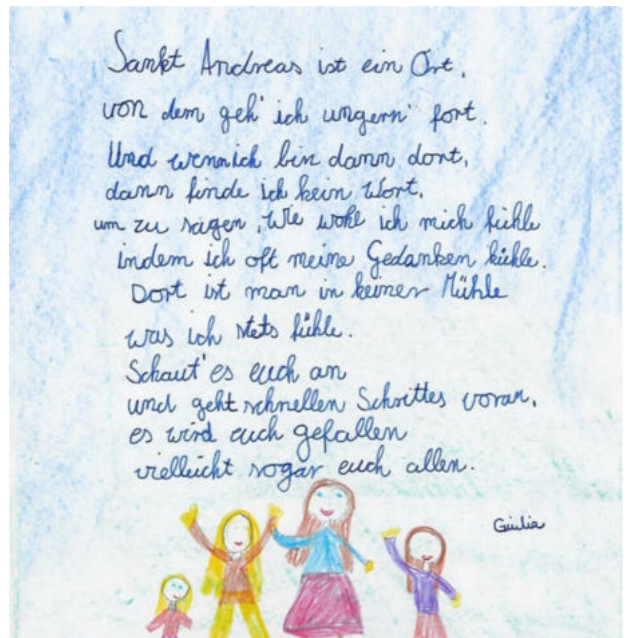 Sankt Andreas ist ein Ort,
von dem geh' ich ungern' fort.
Und wenn ich bin dann dort,
dann finde ich kein Wort,
um zu sagen, wie wohl ich mich fühle
indem ich oft meine Gedanken kühle.
Dort ist man in keiner Mühle
was ich stets fühle.
Schaut' es euch an
und geht schnellen Schrittes voran,
es wird euch gefallen
vielleicht sogar euch allen.
Giulia